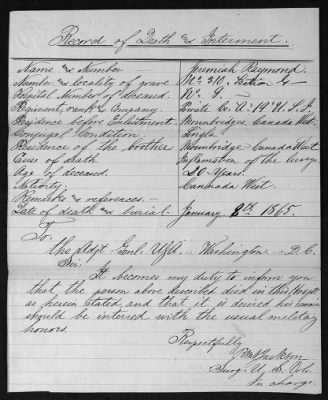 Record of Death and Interment.
Name and Number Jeremiah Raymond
Number and locality of grave No. 310. Section
Hospital Number of deceased. No. 9.
Regiment, rank and Company. Private Co.
Residence before Enlistment. Canada West.
Conjugal Condition. Single
Residence of the brother Canada West
Cause of death. Inflamation of the Lungs
Age of deceased. 20 Years.
Nativity. Cannada West.
Remarks and references.
Date of death and burial. January 8th 1865.
To
the Adjt Genl USA Washington D. C.
Sir:
It becomes my duty to inform you
that the person above described died in this Hospital
as herein stated, and that it is desired his remains
should be interred with the usual military
honors.
Respectfully
Jackson
Surg. U. S. Vols.
In charge.